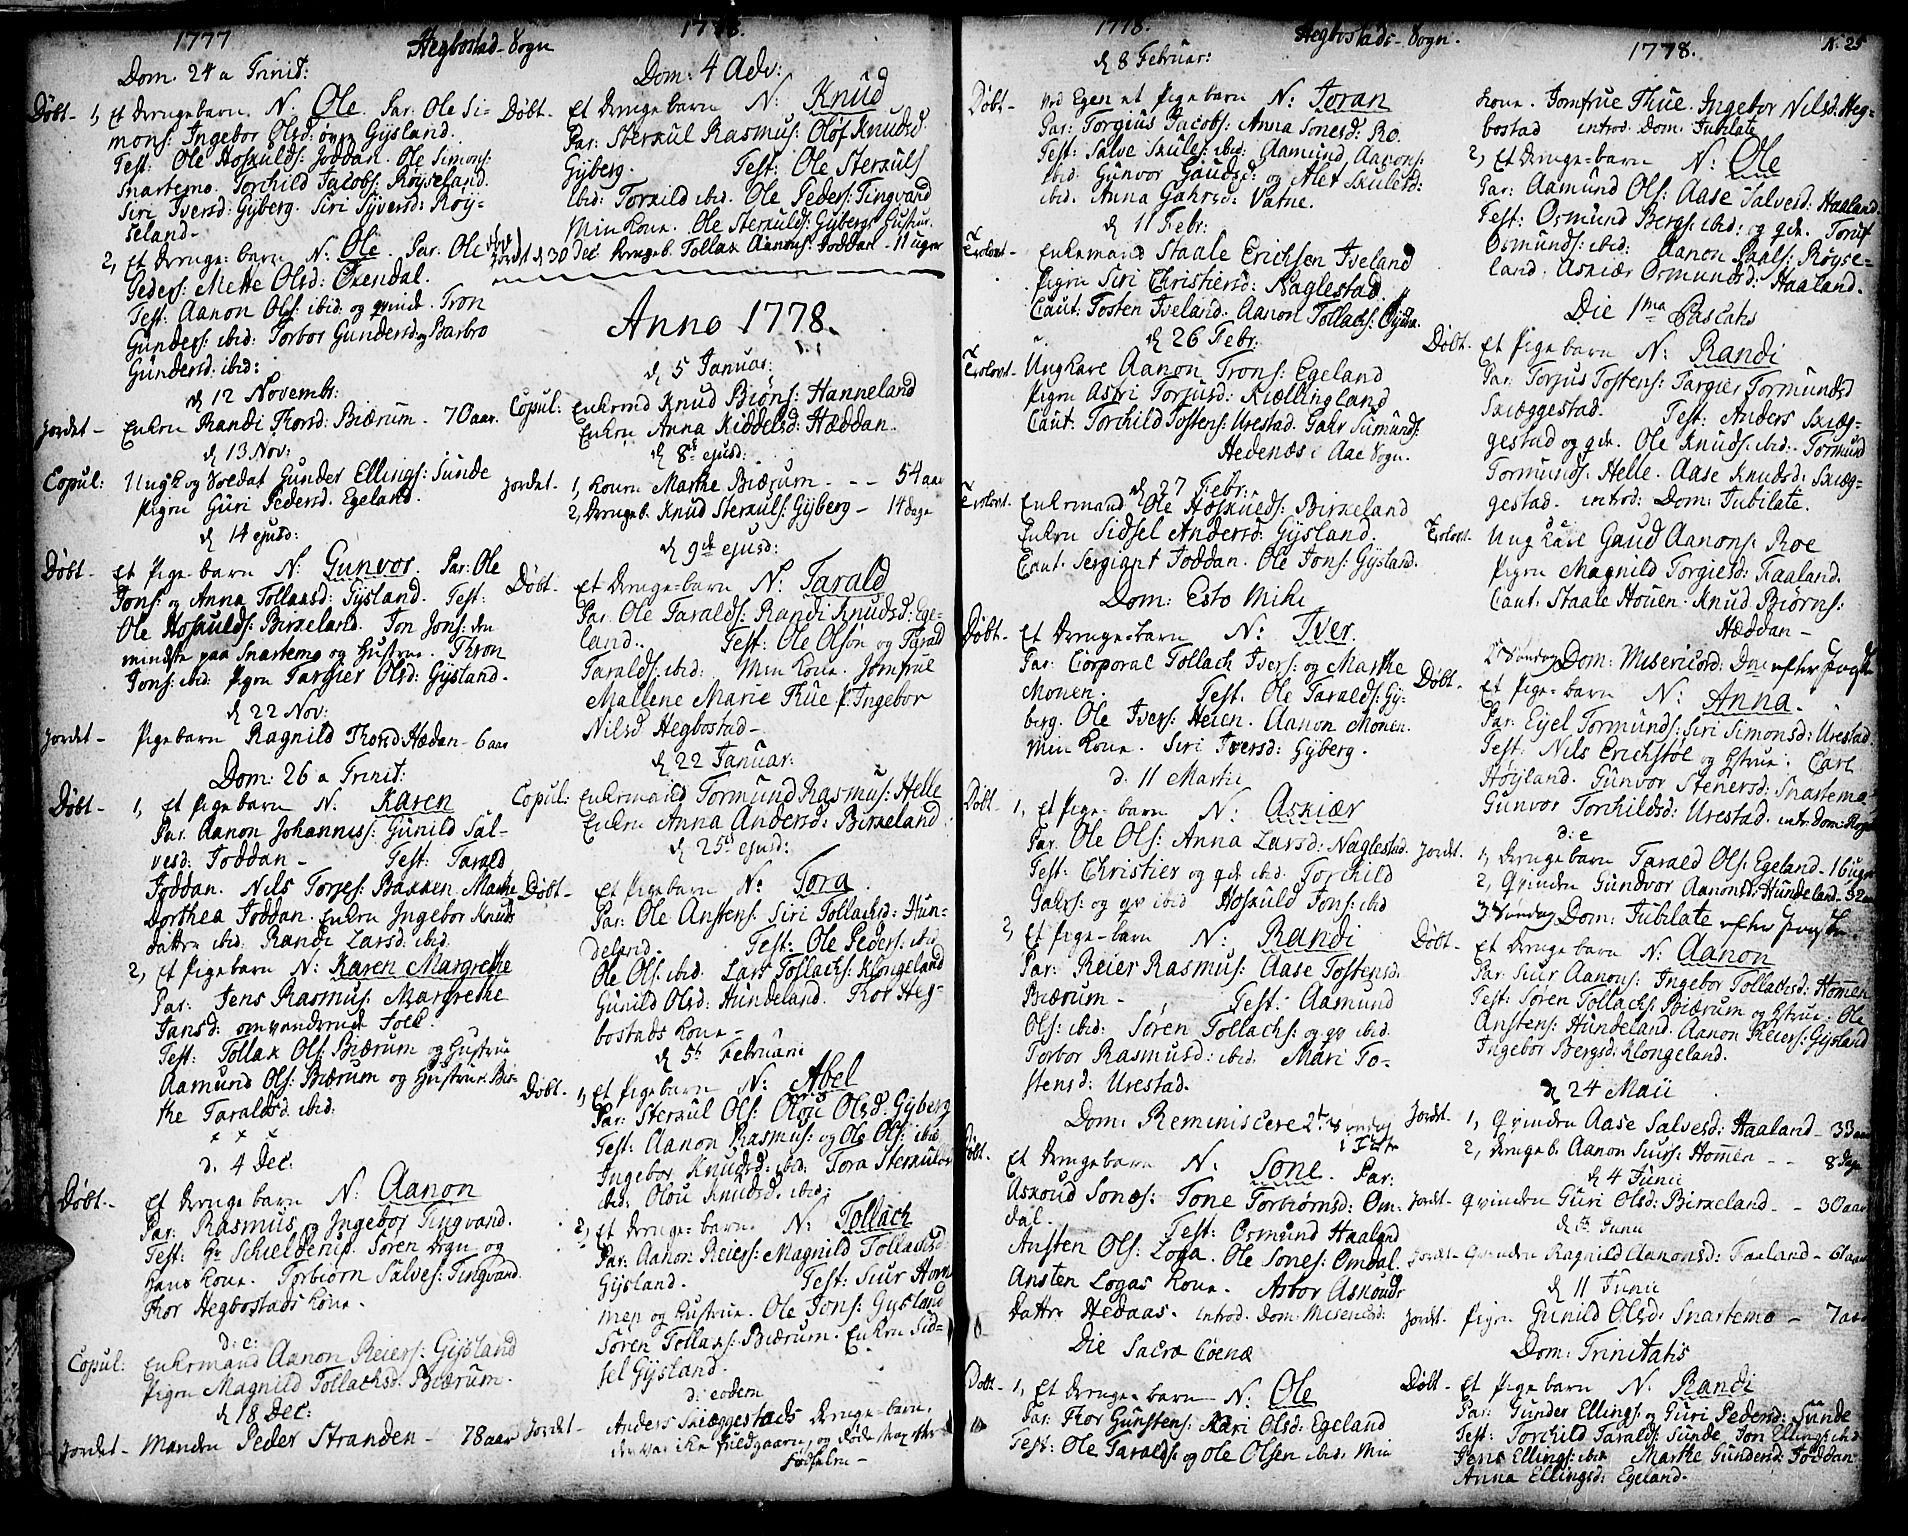 1777
Hegbostad-Sogn
Dom. 24 a Trinit:
Døbt- 1, Et drengebarn. N: Ole. Par. Ole Si-
mons: Ingebor Olsd: øvre Gysland.
Test: Ole Hoskulds: Joddan. Ole Simons:
Snartemo. Torchild Jacobs: Røyseland.
Siri Iversd: Gyberg. Siri Syversd: Røy-
seland-
2, Et drenge-barn N: Ole. Par. Ole
Peders: Mette Olsd: Oxendal.
Test: Aanon Ols: ibid. og qvinde. Tron
Gunders: ibid: Torbor Gundersd og Barbro
Gundersd. ibid:
d 12 Novembr:
Jordet- Enken Randi Thorsd: Biærum. 70 aar.
d 13 Nov:
Copul: Ungk og Soldat Gunder Ellings: Sunde
Pigen Guri Pedersd. Egeland.
d 14 ejusd:
Døbt- Et Pige-barn N: Gunvor. Par: Ole
Jons: og Anna Tollaksd: Gysland. Test:
Ole Hoskulds: Birkeland. Jon Jons: den
mindste paa Snartemo og Hustrue. Thron
Jons: ibid: Pigen Targier Olsd: Gysland.
d 22 Nov:
Jordet- Pigebarn Ragnild Thorsd Hædan- 6 aar
Dom: 26 a Trinit:
Døbt- 1, Et Pigebarn N: Karen
Par. Aanon Johanness: Gunild Sal-
vesd: Joddan- Test: Tarald
Joddan. Nils Torjes: Bakken. Marthe
Dorthea Joddan. Enken Ingebor Knuds
datter ibid. Randi Larsd. ibid.
2, Et Pigebarn N: Karen Margrethe
Par: Jens Rasmus: Margrethe
Jansd: omvandrende Folk.
Test: Tollak Ols: Biærum og Hustrue
Aamund Ols: Biærum og Hustrue. Bir-
the Taraldsd. ibid:
x x x
d. 4 Dec:
Døbt- Et drenge barn N: Aanon
Par. Rasmus og Ingebor Tingvand.
Test: Hr Schielderup. Søren Degn og
hans Kone. Torbiørn Salves: Tingvand.
Thor Hegbostads Kone.
d: e:
Copul: Enkemand Aanon Reiers: Gysland
Pigen Magnild Tollachsd. Biærum.
d 18 Dec:
Jordet- Manden Peder Stranden- 78 aar
1778.
Dom: 4 Adv:
Døbt. Et drengebarn N: Knud
Par: Sterkul Rasmus: Oløf Knudsd.
Gyberg. Test: Ole Sterkuls
ibid: Torkild ibid. Ole Peders: Tingvand
Min Kone. Ole Sterkulds: Gybergs Hustru.
Jordet d 30 Dec drengeb. Tollak Aanons: Joddan- 11 uger
Anno 1778.
d 5 Januar:
Copul: Enkemd Knud Biøns: Hanneland
Enken Anna Kiddelsd: Hæddan.
d 8de ejusd:
Jordet. 1, Konen Marthe Biærum. - - 54 aar
2, drengeb. Knud Sterkuls: Gyberg- 14 dage
d 9de ejusd:
Døbt. Et drenge-barn N: Tarald
Par. Ole Taralds: Randi Knudsd. Ege-
land. Test: Ole Olsøn og Tarald
Taralds. ibid: Min Kone. Jomfrue
Mallene Marie Thue P. Ingebor
Nilsd Hegbostad-
d 22 Januar:
Copul: Enkemand Tormund Rasmus: Helle
Enken Anna Andersd: Birkeland.
d 25de ejusd:
Døbt- Et Pigebarn N: Tora
Par: Ole Anstens: Siri Tollachsd: Hun-
deland. Test: Ole Peders: ibid
Ole Ols: ibid. Lars Tollachs: Klongeland
Gunild Olsd: Hundeland. Thor Heg-
bostads Kone-
d 5te Februarii
Døbt- 1, Et Pigebarn N: Abel
Par: Sterkul Ols: Oloü Olsd: Gyberg
Test: Aanon Rasmus: og Ole Ols: ibid
Ingebor Knudsd: ibid: Tora Sterkulsd
ibid: Oloü Knudsd. ibid:
2, Et drenge-barn N: Tollach
Par: Aanon Reiers: Magnild Tollachsd:
Gysland. Test: Siur Hom-
men og Hustrue. Ole Jons: Gysland
Søren Tollaks: Biærum. Enken Sid-
sel Gysland.
d: eodem
Jordet- Anders Skieggestads drenge-barn,
der var ikke fuldgaaren, og døde strax efter
Fødselen-
1778.
Hegbostads-Sogn.
d 8 Februar:
Døbt- ved Egen et Pigebarn N: Joran
Par: Torgius Jacobs: Anna Sonesd: Ro.
Test: Salve Skules: ibid: Aamund Aanons:
ibid. Gunvor Gaudsd: og Alet Skulesd:
ibid. Anna Gahrsd: Vatne.
d 11 Febr:
Trolovt- Enkemand Staale Erichsen Iveland
Pigen Siri Christiersd: Naglestad.
Caut. Tosten Iveland: Aanon Tollachs:
d 26 Febr:
Trolovt- Ungkare Aanon Trons: Egeland
Pigen Astri Torjusd: Kiellingland
Caut. Torchild Tostens: Urestad. Gahr Simunds:
Hedenæs i Aae Sogn.
d 27 Febr:
Trolovt. Enkemand Ole Hoskulds: Birkeland
Enken Sidsel Andersd: Gysland.
Caut. Sergiant Joddan. Ole Jons: Gysland.
Dom: Esto Mihi
Døbt- Et drenge-barn N: Iver.
Par: Corporal Tollach Ivers: og Marthe
Monen. Test. Ole Taralds: Gy-
berg. Ole Ivers: Heien. Aanon Monen.
Min Kone. Siri Iversd: Gyberg.
d. 11 Martii
Døbt. 1, Et Pige-barn N: Askiær
Par. Ole Ols: Anna Larsd: Naglestad.
Test: Christier og qv. ibid. Torchild
Gahrs: og qv ibid Hoskuld Jons: ibid
2, Et Pige-barn N: Randi
Par: Reier Rasmus: Aase Tostensd.
Biærum- Test: Aamund
Ols: ibid: Søren Tollachs: og qv ibid.
Torbor Rasmusd: ibid. Mari To-
stensd: Urestad.
Dom: Reminiscere 2den Søndag
i Faste
Døbt. Et drengebarn N: Sone. Par:
Askoud Sones: Tone Torbiørnsd: Om-
dal. Test: Osmund Haaland
Ansten Ols: Loga. Ole Sones: Omdal.
Ansten Logas Kone. Asbor Askouds
Datter Hedaas. introd. Dom: Misericord:
Die Sacræ Coenæ
Døbt- 1, Et drenge-barn N: Ole
Par: Thor Gunstens: Mari Olsd: Egeland
Test: Ole Taralds: og Ole Olsen ibid: Min
1778.
N. 25
Kone. Jomfrue Thue. Ingebor Nilsd: Heg-
bostad introd. Dom: Jubilate
2, Et drenge-barn N: Ole
Par: Aamund Ols: Aase Salvesd: Haaland.
Test: Osmund Bergs: ibid: og qv.
Osmunds: ibid: Aanon Paals: Røyse-
land. Askiær Osmundsd: Haaland.
Die 1ma Paschatis
Døbt. Et Pigebarn N: Randi
Par: Torjus Tostens: Targier Tormundsd
Skieggestad. Test: Anders Skieg-
gestad og qv. Ole Knuds: ibid: Tormund
Tormunds: Helle. Aase Knudsd: Skieg-
gestad. introd: Dom: Jubilate.
Trolovt. Ung Kare Gaud Aanons: Roe
Pigen Magnild Torgiesd: Kaaland.
Caut: Staale Houen. Knud Biørns:
Hæddan-
2de Søndag Dom: Misericord: Dni efter Paaske
Døbt. Et Pige-barn N: Anna.
Par: Eyel Tormunds: Siri Simonsd: Urestad.
Test: Nils Erichstøl og Hstrue. Carl
Høyland. Gunvor Stenersd: Snartemo.
Gunvor Torchildsd: Urestad. intr: Dom: Rogate
d: e
Jordt. 1, drengebarn Tarald Ols: Egeland- 16 uger
2, Qvinden Gundvor Aanonsd: Hundeland- 32 aar
3de Søndag Dom: Jubilate efter Paaske
Døbt- Et drengebarn N: Aanon
Par. Siur Aanons: Ingebor Tollachsd: Homen
Test: Søren Tollachs: Biærum og Hstrue: Ole
Anstens: Hundeland. Aanon Reiers: Gysland
Ingebor Bergsd: Klongeland.
d 24 Maii
Jordet. 1, Qvinden Aase Salvesd: Haaland- 33 aar
2, drengeb. Aanon Siurs: Homen - - 8 dage
d 4 Junii
Jordt- Qvinden Guri Olsd: Birkeland- - 30 aar
d Junii
Jordet- Qvinden Ragnild Aanonsd: Faaland- 61 aar
d 11 Junii
Jordt. Pigen Gunild Olsd: Snartemo- 7 aar
Dom: Trinitatis
Døbt- Et Pige barn N. Randi
Par: Gunder Ellings: og Guri Pedersd: Sunde
Test: Torchild Taralds: Sunde, Jon Ellings: ibid
Jens Ellings: ibid Marthe Gundersd: Joddan
Anna Ellingsd: Egeland.